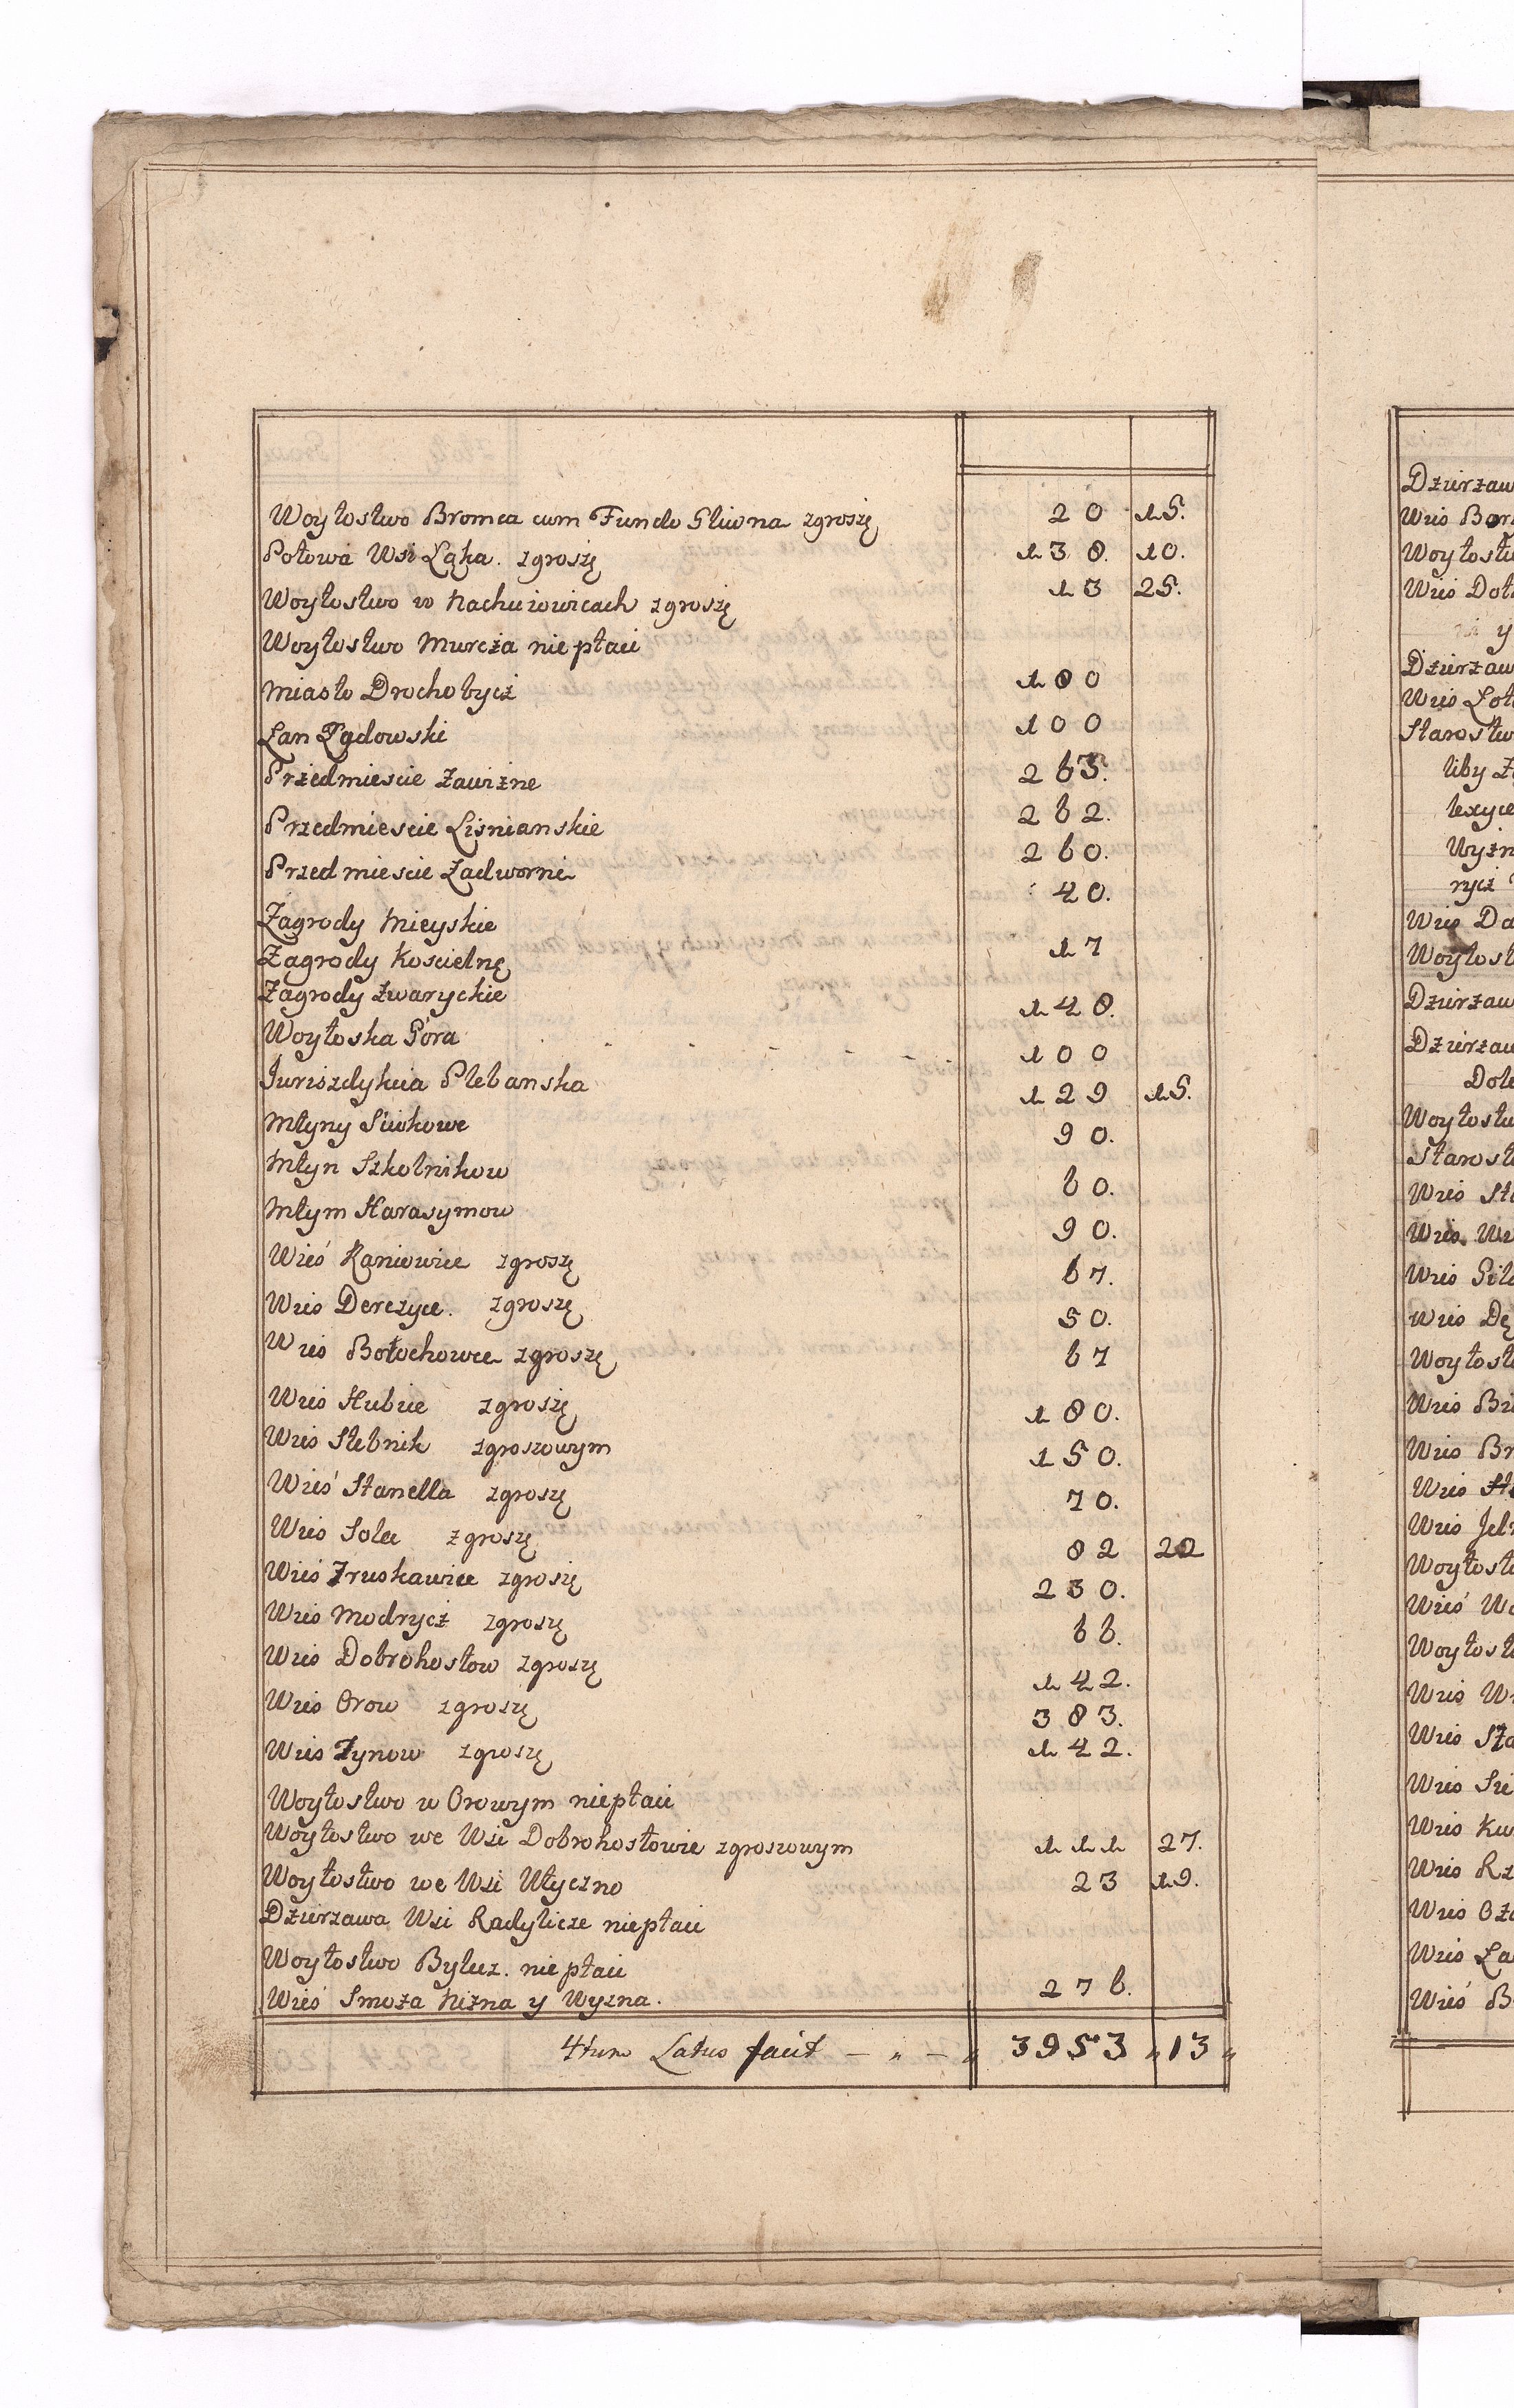 Woytostwo Bromca cum Fundo Gliwna zgroszę 20 15.
Połowa Wsi Łąka. zgroszę 138. 10.
Woytostwo w Nachuiowicach zgroszę 13 25.
Woytostwo Murcza nie płaci
Miasto Drochobycz 180
Łan Lądowski 100
Przedmiescie Zawizne 263.
Przedmiescie Lisnianskie 262.
Przedmiescie Zadworne 260.
Zagrody Mieyskie 40.
Zagrody Koscielnę 17
Zagrody Zwaryckie 148.
Woytoska Góra 100
Jurizdykcia Plebanska 129 15.
Młyny Siwkowe 90.
Młyn Szkolnikow 60.
Młym Harasymow 90.
Wieś Raniowice zgroszę 67.
Wies Derezyce. zgroszę 50.
Wies Bołochowce zgroszę 67
Wies Hubice zgroszę 180.
Wies Stebnik zgroszowym 150.
Wieś Stanella zgroszę 70.
Wies Solec zgroszę 82 22
Wieś Truskawice zgroszę 230.
Wies Modrycz zgroszę 66.
Wies Dobrohostow zgroszę 142.
Wies Orow zgroszę 383.
Wies Tynow zgroszę 142.
Woytostwo w Orowym niepłaci
Woytostwo we Wsi Dobrohostowie zgroszowym 111 27.
Woytostwo we Wsi Ulyczno 23 19.
Dzierzawa Wsi Radylicze niepłaci
Woytostwo Bylicz. nie płaci
Wieś Smoza Nizna y Wyzna. 276.
4tum Latus facit – „ – „ 3953 „ 13 „
Dzierzaw
Wies
Woytostw
Wies
y
Dzierzaw
Wies
Starostw
Wies
Dzierzaw
Dzierzaw
Wies
Wies
Wies
Wies
Wies
Wies
Wies
Wies
Wieś
Wies
Wies
Wies
Wies
Wies
Wies
Wies
Wieś